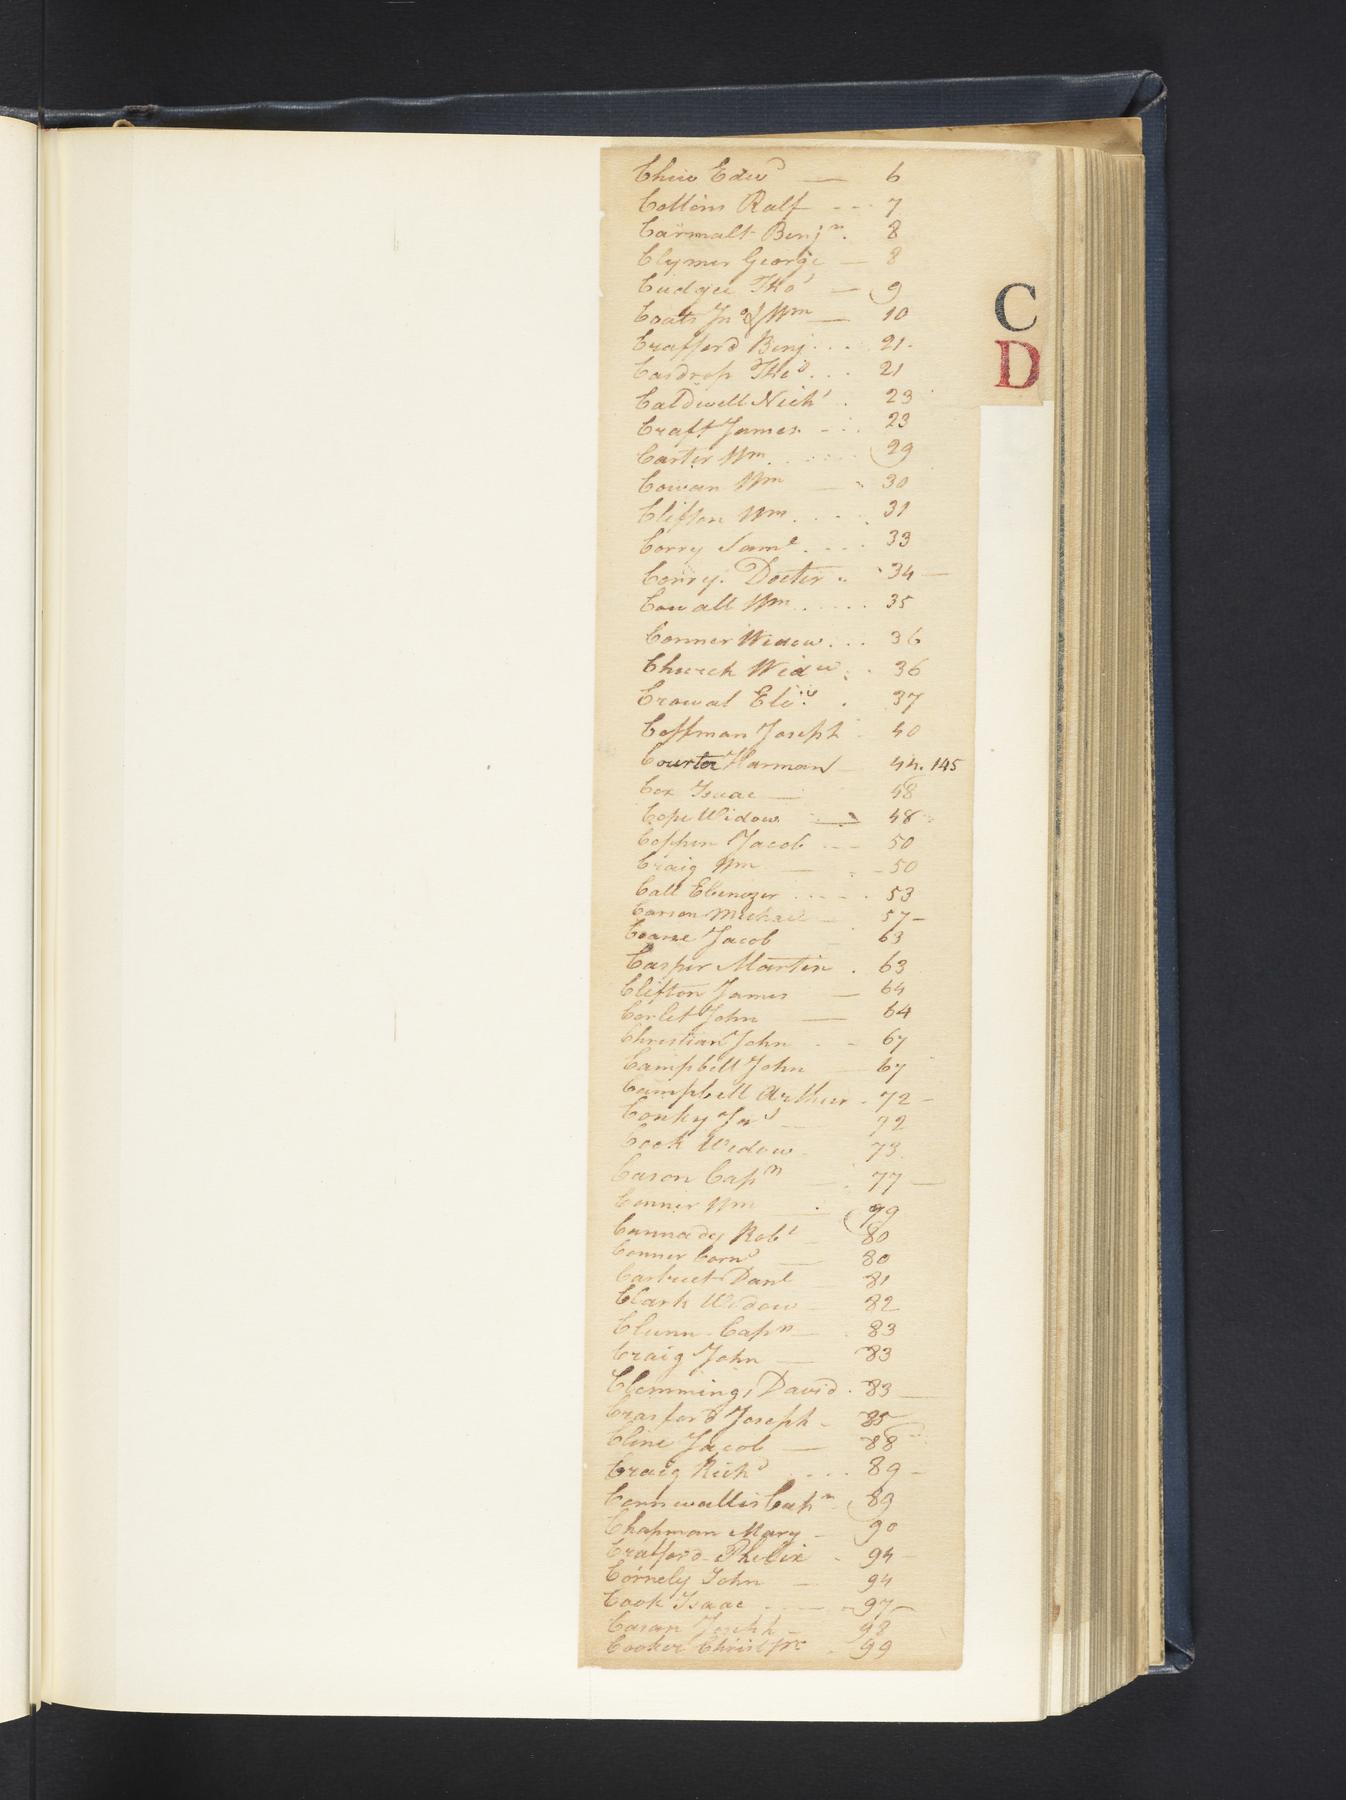 Chew Edwd — 6
Collins Ralf --- 7
Carmalt Benjn. 8
Clymer George — 8
Cudgee Thos — 9
Coats Jno & Wm — 10
Crafford Benj ... 21.
Casdrop Thos ... 21
Caldwell Nichs . 23
Craft James - .. 23
Carter Wm ..... 29
Cowan Wm — 30
Clifton Wm .... 31
Corry Saml .... 33
Corry. Docter .. 34 —
Cowall Wm ..... 35
Conner Widow ... 36
Church Widw . . 36
Crowal Eliz . 37
Coffman Joseph - 40
Courter Harman — 44. 145
Cox Isaac — 48
Cope Widow — 48
Cophen Jacob --- 50
Craig Wm — - 50
Call Ebenezer ..... 53
Carson Michael — 57 —
Coane Jacob 63
Casper Martin . 63
Clifton James — 64
Corlet John — 64
Christian John - - 67
Campbell John — 67
Campbell Arthur . 72 -
Conky Jas — 72
Cook Widow - 73.
Cason Capn — . 77 —
Conner Wm — . 79
Cannady Robt — 80
Conner Corns — 80
Danl — 81
Clark Widow — 82
Clunn Capn — . 83
Craig John — 83
Clemming, David . 83 —
Crasford Joseph - 85
Cline Jacob — 88
Craig Richd .... 89 -
Cornwallis Capn - 89
Chapman Mary - 90
Crafford Phelix - 94 -
Cornely John — 94
Cook Isaac ... — 97 -
Casan Joseph - 98
Cooker Christpr . 99
C
D